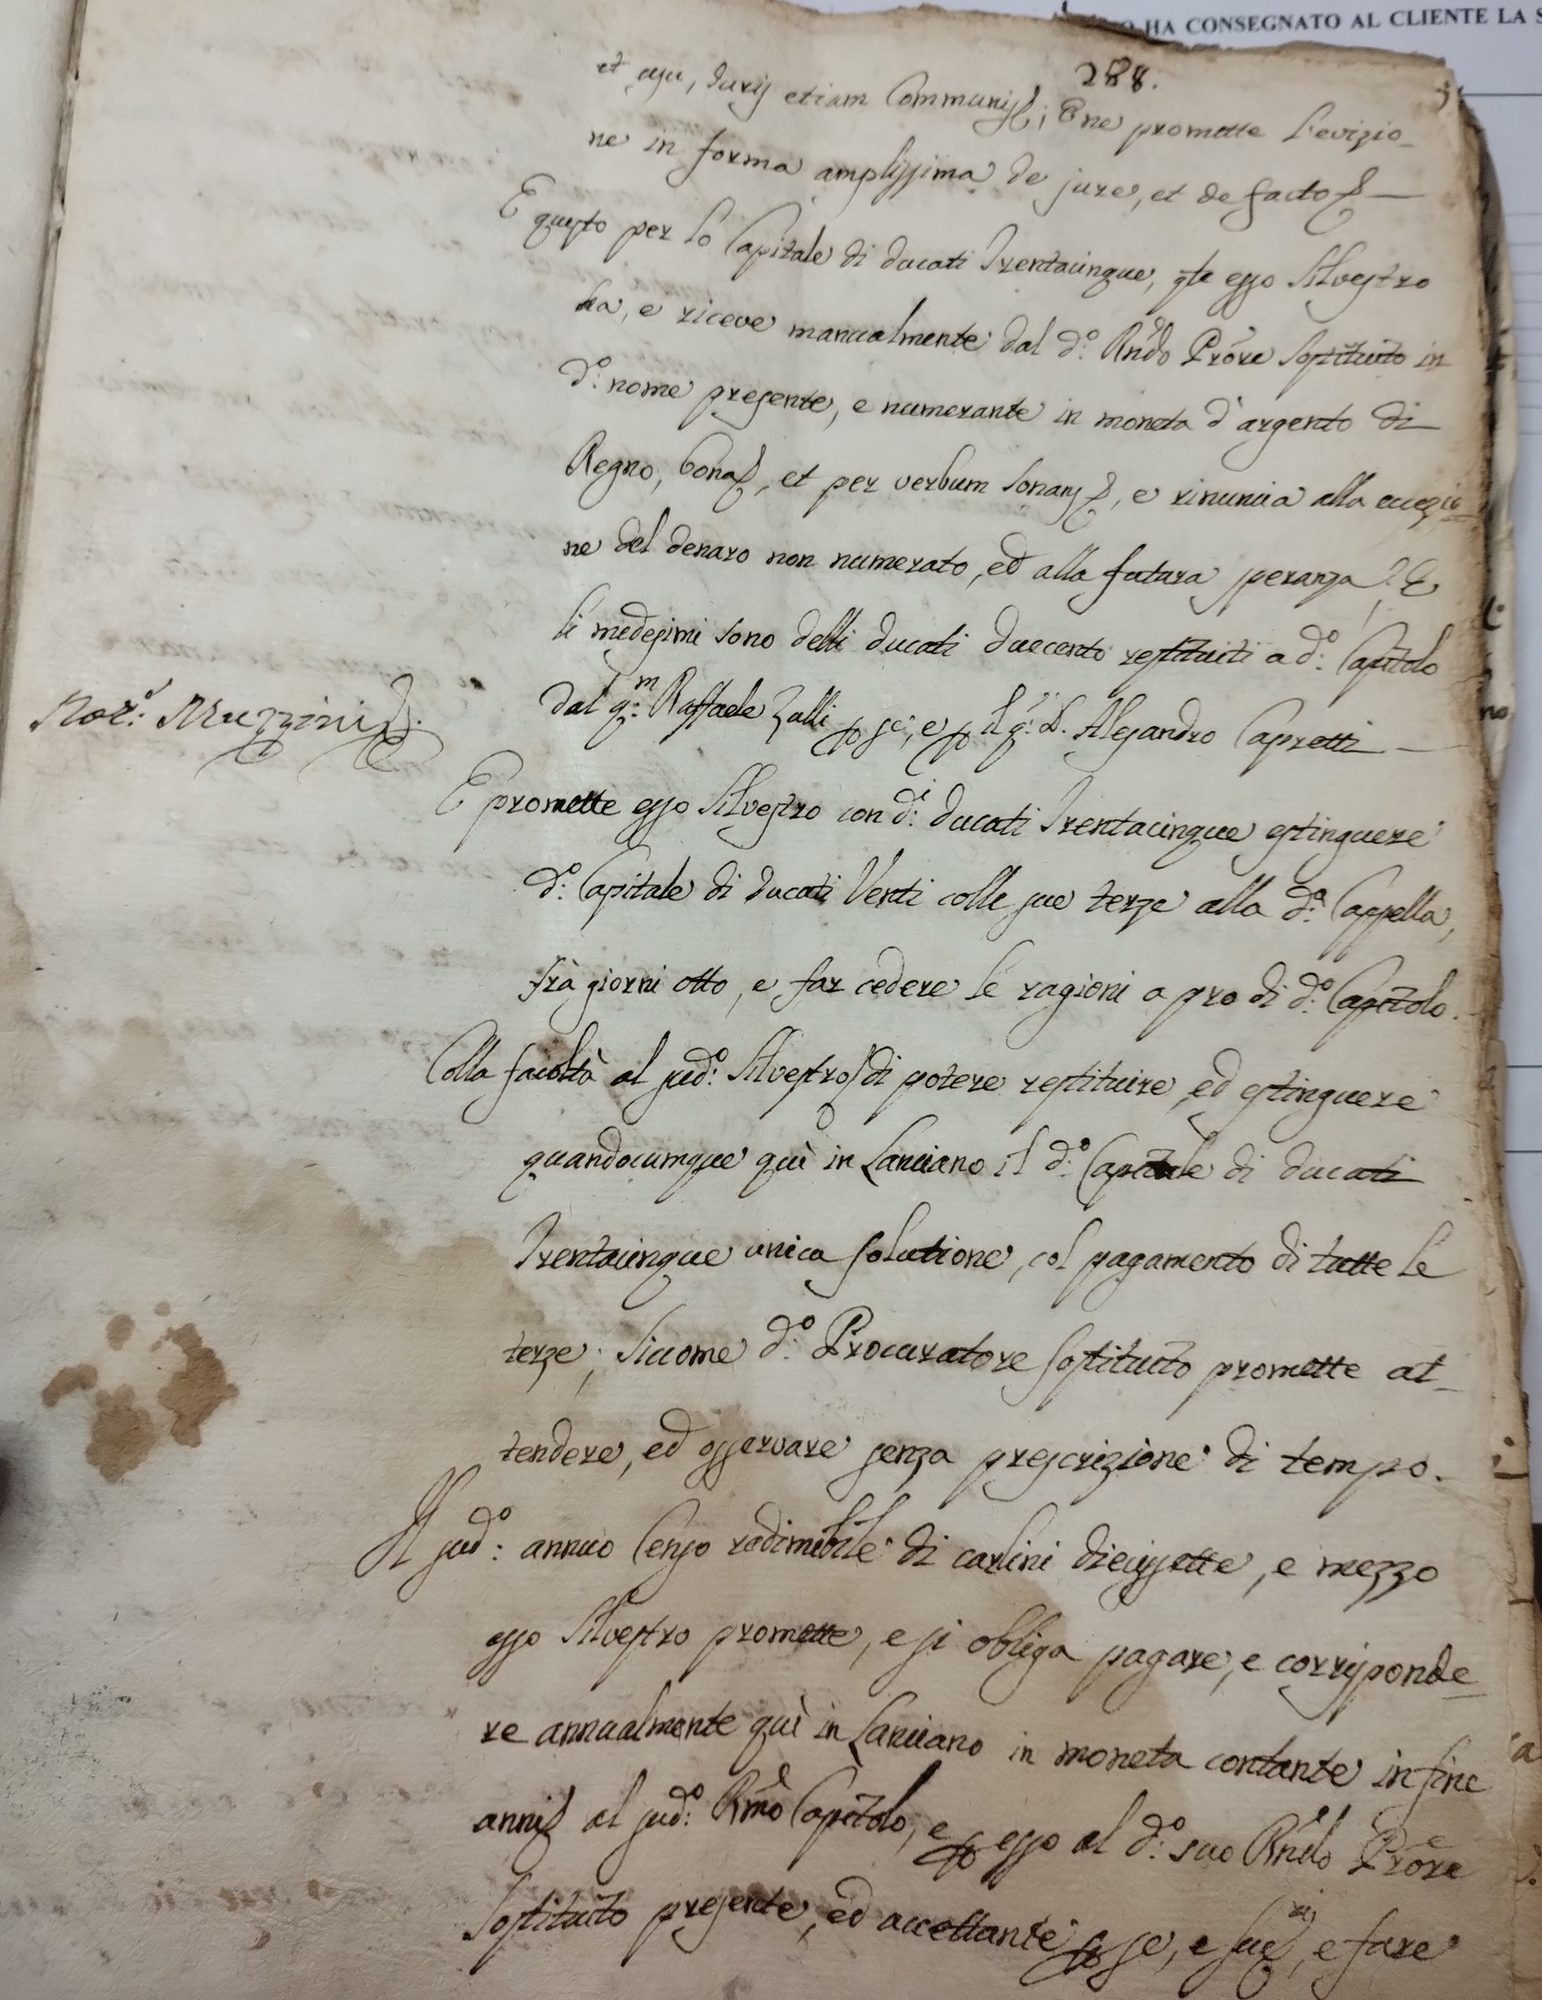 HA CONSEGNATO AL CLIENTE LA S
288.
et usu, Juris etiam Communis; E ne promette l'evizio-
ne in forma amplissima de jure, et de facto
E questo per lo Capitale di ducati Trentacinque, qle esso Silvestro
ha, e riceve manualmente dal do: Rndo Prore sostituito in
do: nome presente, e numerante in moneta d'argento di
Regno, bona, et per verbum sonans, e rinuncia alla eccezio-
ne del denaro non numerato, ed alla futura speranza E
li medesimi sono delli ducati duecento restituiti a do: Capitolo
dal qm: Raffaele Zalli p se, e p il q: D. Alesandro Capretti
Nor: Muzzini
E promette esso Silvestro con di: ducati Trentacinque estinguere
do: Capitale di ducati Venti colle sue terze alla da: Cappella,
frà giorni otto, e far cedere le ragioni a pro di do: Capitolo.
Colla facoltà al sudo: Silvestro di potere restituire, ed estinguere
quandocumque quì in Lanciano il do: Capitale di ducati
Trentacinque unica solutione, col pagamento di tutte le
terze; siccome do: Procuratore sostituito promette at-
tendere, ed osservare senza prescrizione di tempo.
Il sudo: annuo Censo redimibile di carlini diecisette, e mezzo
esso Silvestro promette, e si obliga pagare, e corrisponde-
re annualmente quì in Lanciano in moneta contante in fine
anni al sudo: Rmo Capitolo, e p esso al do: suo Rndo Prore
sostituito presente, ed accettante p se, e suoi, e fare